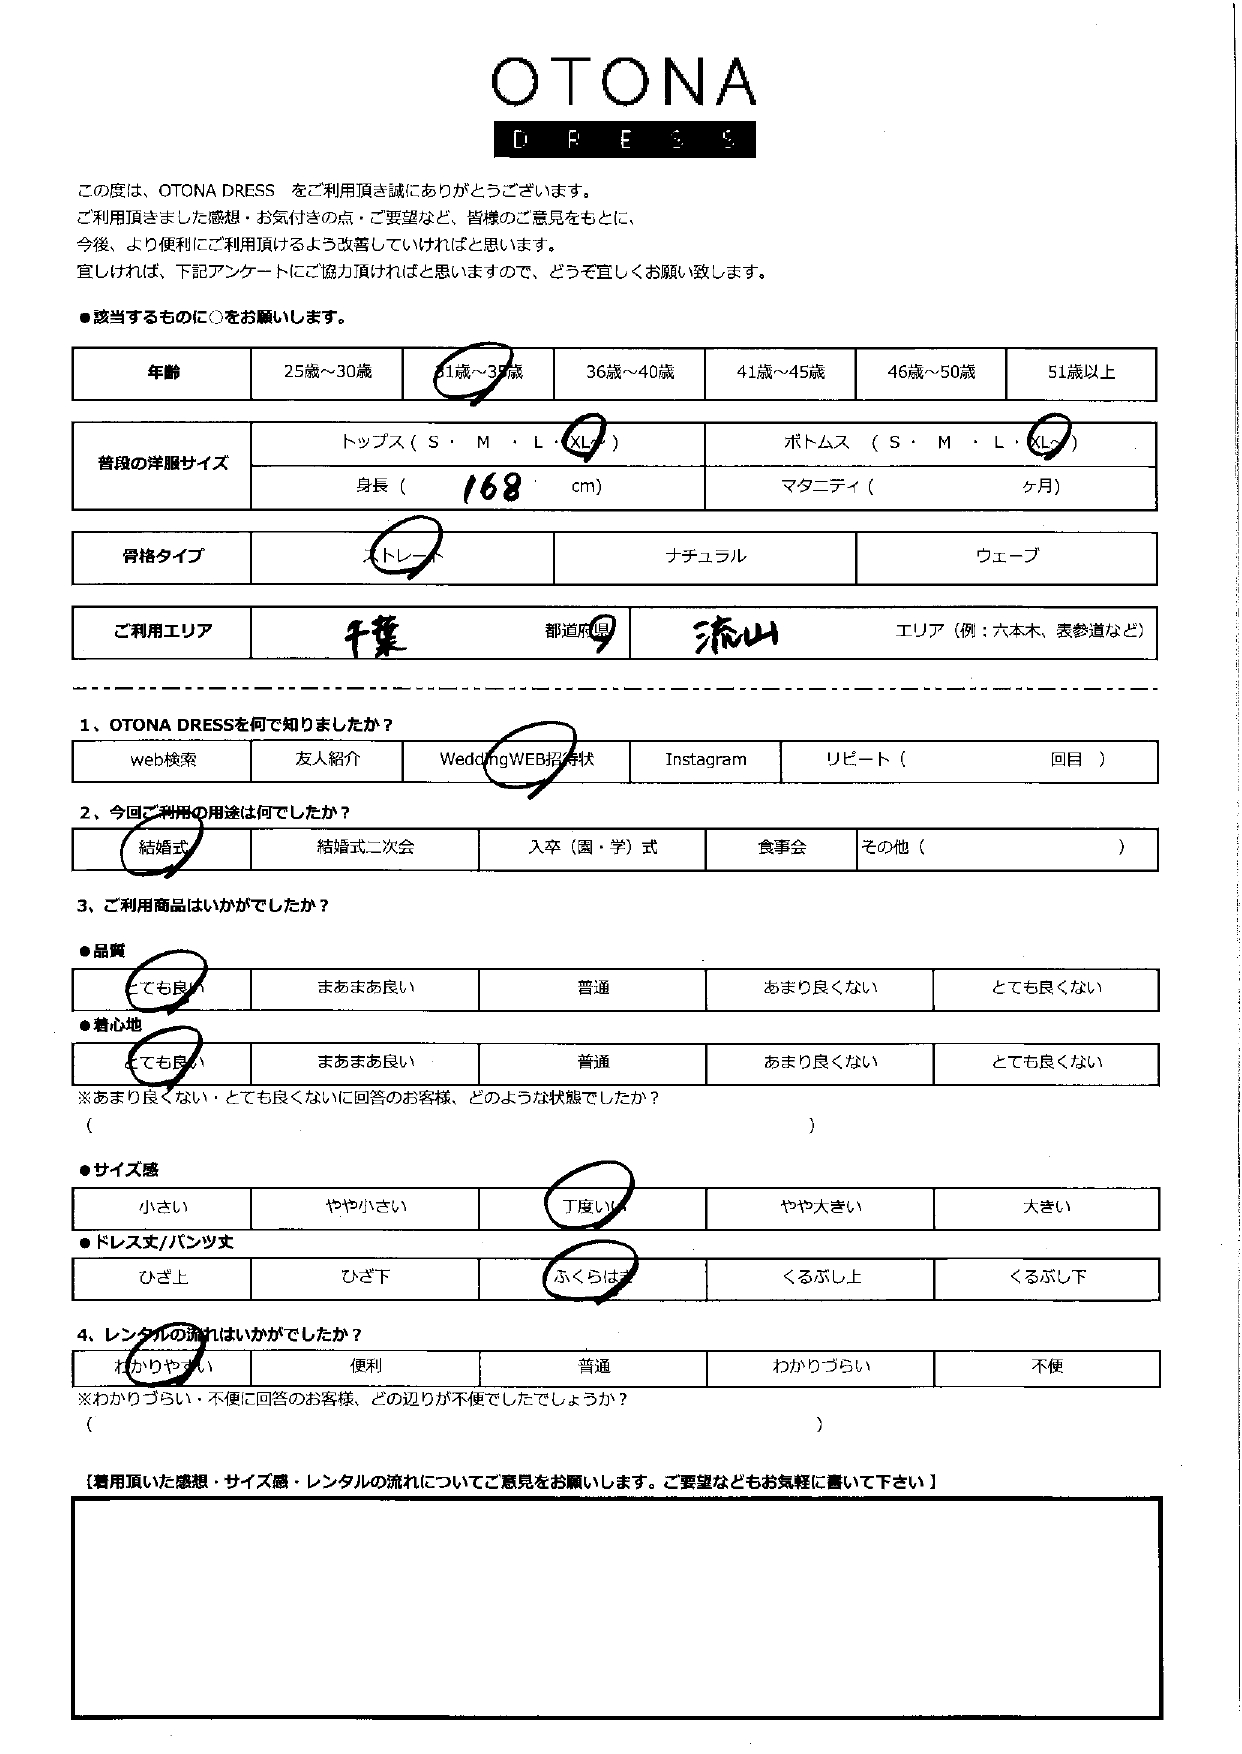 OTONA
DRESS
この度は、OTONA DRESS をご利用頂き誠にありがとうございます。
ご利用頂きました感想・お気付きの点・ご要望など、皆様のご意見をもとに、
今後、より便利にご利用頂けるよう改善していければと思います。
宜しければ、下記アンケートにご協力頂ければと思いますので、どうぞ宜しくお願い致します。
●該当するものに○をお願いします。
年齢 25歳～30歳 31歳～35歳 36歳～40歳 41歳～45歳 46歳～50歳 51歳以上
普段の洋服サイズ トップス ( S ・ M ・ L ・ XL~ ) ボトムス ( S ・ M ・ L ・ XL~ )
身長 ( 168 cm) マタニティ ( ヶ月)
骨格タイプ ストレート ナチュラル ウェーブ
ご利用エリア 千葉 都道府県 流山 エリア（例：六本木、表参道など）
1、OTONA DRESSを何で知りましたか？
web検索 友人紹介 WeddingWEB招待状 Instagram リピート（ 回目 ）
2、今回ご利用の用途は何でしたか？
結婚式 結婚式二次会 入卒（園・学）式 食事会 その他（ ）
3、ご利用商品はいかがでしたか？
●品質
とても良い まあまあ良い 普通 あまり良くない とても良くない
●着心地
とても良い まあまあ良い 普通 あまり良くない とても良くない
※あまり良くない・とても良くないに回答のお客様、どのような状態でしたか？
（ ）
●サイズ感
小さい やや小さい 丁度いい やや大きい 大きい
●ドレス丈/パンツ丈
ひざ上 ひざ下 ふくらはぎ くるぶし上 くるぶし下
4、レンタルの流れはいかがでしたか？
わかりやすい 便利 普通 わかりづらい 不便
※わかりづらい・不便に回答のお客様、どの辺りが不便でしたでしょうか？
（ ）
【着用頂いた感想・サイズ感・レンタルの流れについてご意見をお願いします。ご要望などもお気軽に書いて下さい】